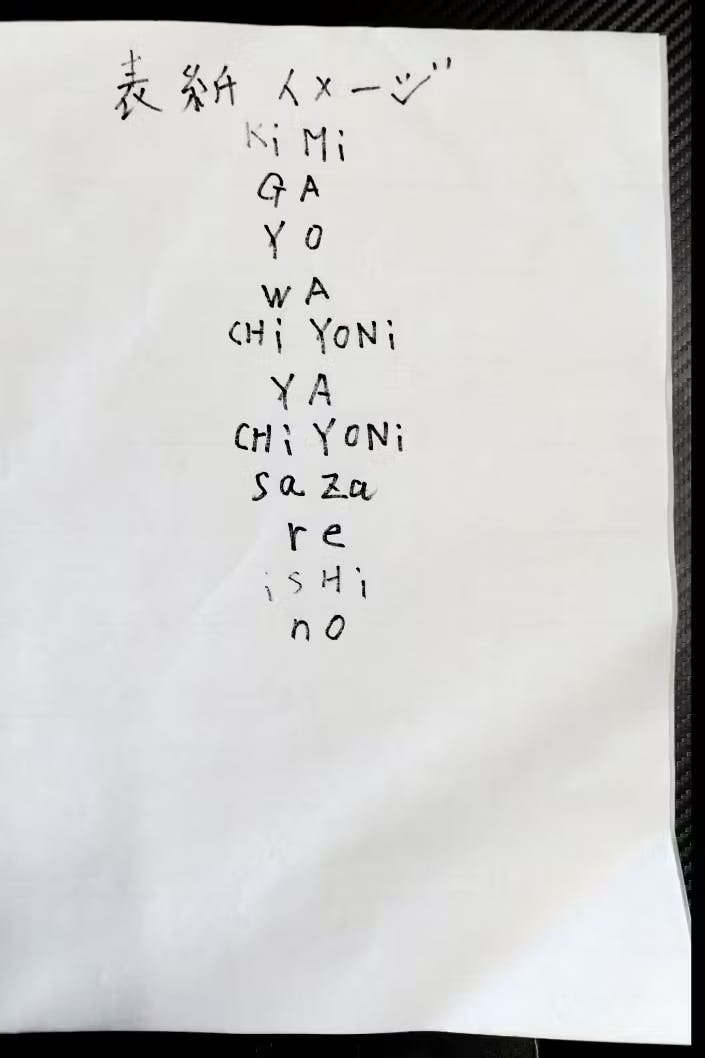 表紙 イメージ
Ki Mi
GA
YO
WA
CHi YONi
YA
CHi YONi
sa za
re
iSHi
nO